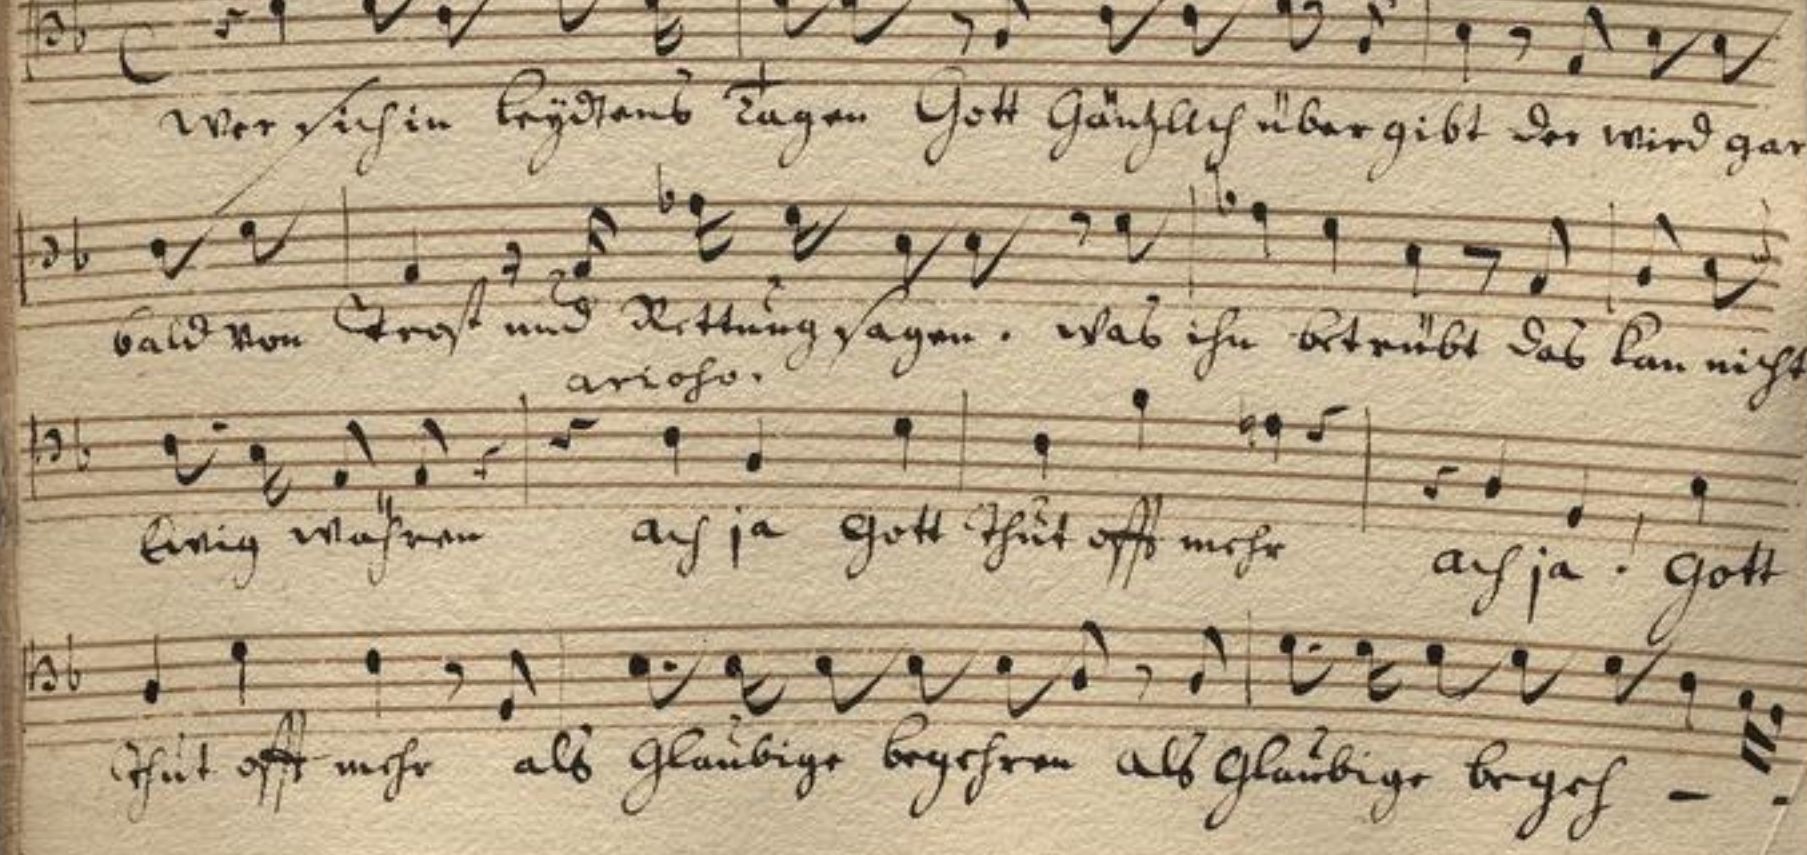 Wer sich in leydens Tagen Gott Gäntzlich übergibt der wird gar
bald von Trost und Rettung sagen. was ihn betrübt das kan nicht
arioso.
Ewig währen ach ja Gott thut offt mehr ach ja ! Gott
thut offt mehr als Glaubige begehren als Glaubige begeh - -